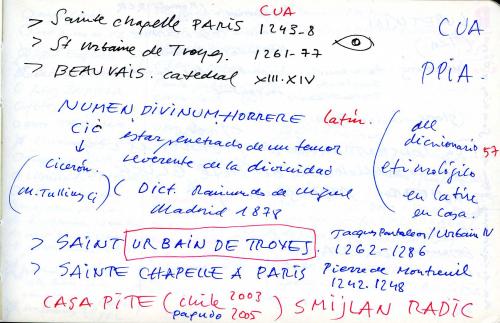 CUA
> Sainte chapelle PARIS 1243-8
> St Urbaine de Troyes. 1261-77
> BEAUVAIS. catedral XIII.XIV
CUA
PPIA.
NUMEN DIVINUM HORRERE latín.
CIC estar penetrado de un temor
reverente de la divinidad
Cicerón.
(M. Tullius Ci)
( Dict. Raimundo de Miguel
Madrid 1878
( del
diccionario 57
etimológico
en latín
en casa.
> SAINT URBAIN DE TROYES. Jacques Pantaleon/Urbain IV
1262-1286
> SAINTE CHAPELLE A PARIS Pierre de Montreuil
1242.1248
CASA PITE ( chile 2003
papudo 2005 ) SMIJLAN RADIC